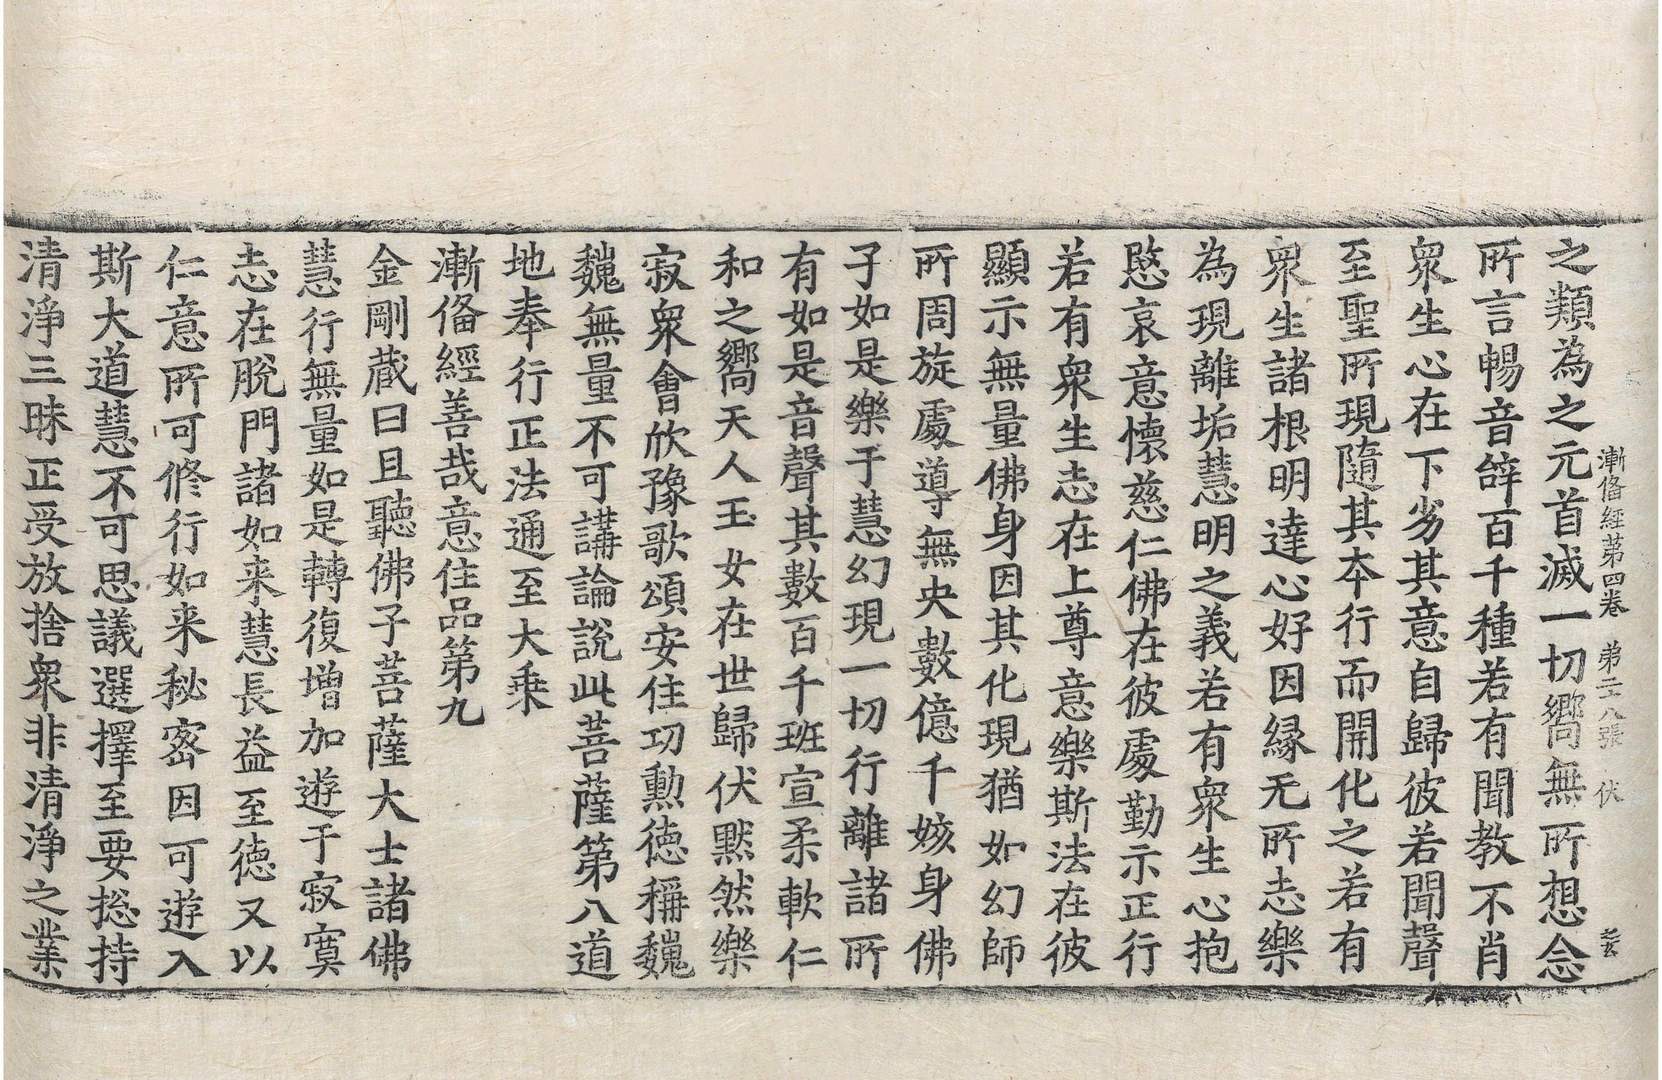 漸俻經第四卷 第二十八張 伏
之類為之元首滅一切嚮無所想念
所言暢音辝百千種若有聞教不肖
衆生心在下劣其意自歸彼若聞聲
至聖所現隨其夲行而開化之若有
衆生諸根明達心好因緣无所志樂
為現離垢慧明之義若有衆生心抱
愍哀意懷慈仁佛在彼處勤示正行
若有衆生志在上尊意樂斯法在彼
顯示無量佛身因其化現猶如幻師
所周旋處導無央數億千姟身佛
子如是樂于慧幻現一切行離諸所
有如是音聲其數百千班宣柔軟仁
和之嚮天人玉女在世歸伏黙然樂
寂衆會欣豫歌頌安住功勲徳稱巍
巍無量不可講論說此菩薩第八道
地奉行正法通至大乗
漸俻經善哉意住品第九
金剛蔵曰且聽佛子菩薩大士諸佛
慧行無量如是轉復增加遊于寂寞
志在脫門諸如来慧長益至徳又以
仁意所可修行如来秘宻因可遊入
斯大道慧不可思議選擇至要捴持
清淨三昧正受放捨衆非清淨之業